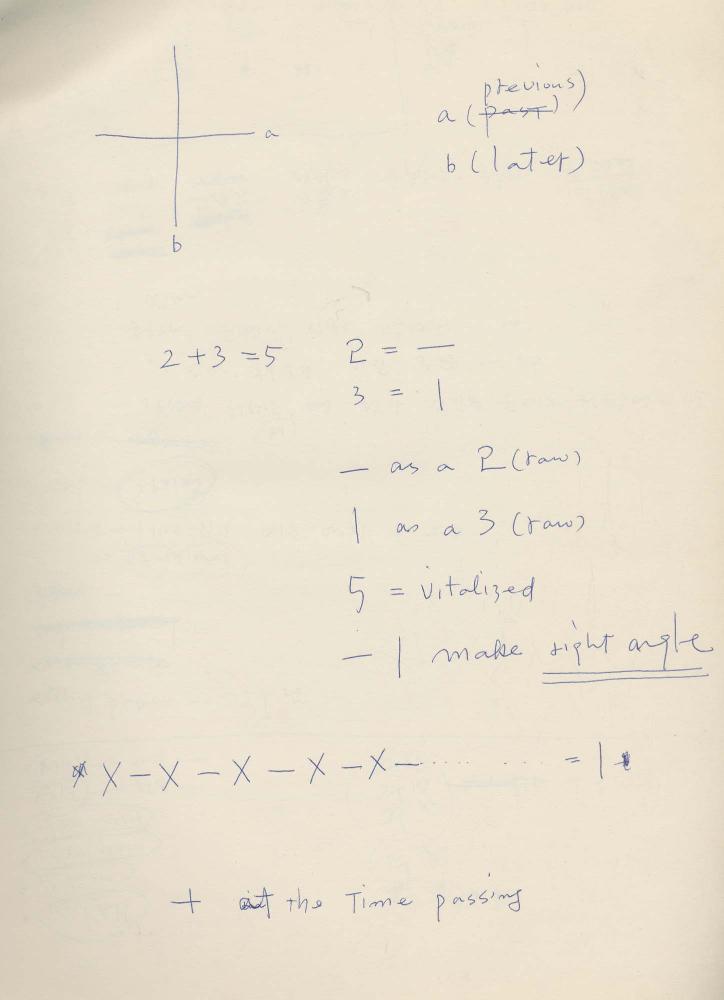 a
b
previous)
a (past)
b (later)
2 + 3 = 5
2 = —
3 = |
— as a 2 (raw)
| as a 3 (raw)
5 = vitalized
— | make right angle
X — X — X — X — X — ........ = |
+ at the Time passing